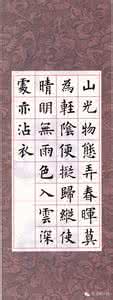 山光物態弄春暉莫
為輕陰便擬歸縱使
晴明無雨色入雲深
處亦沾衣